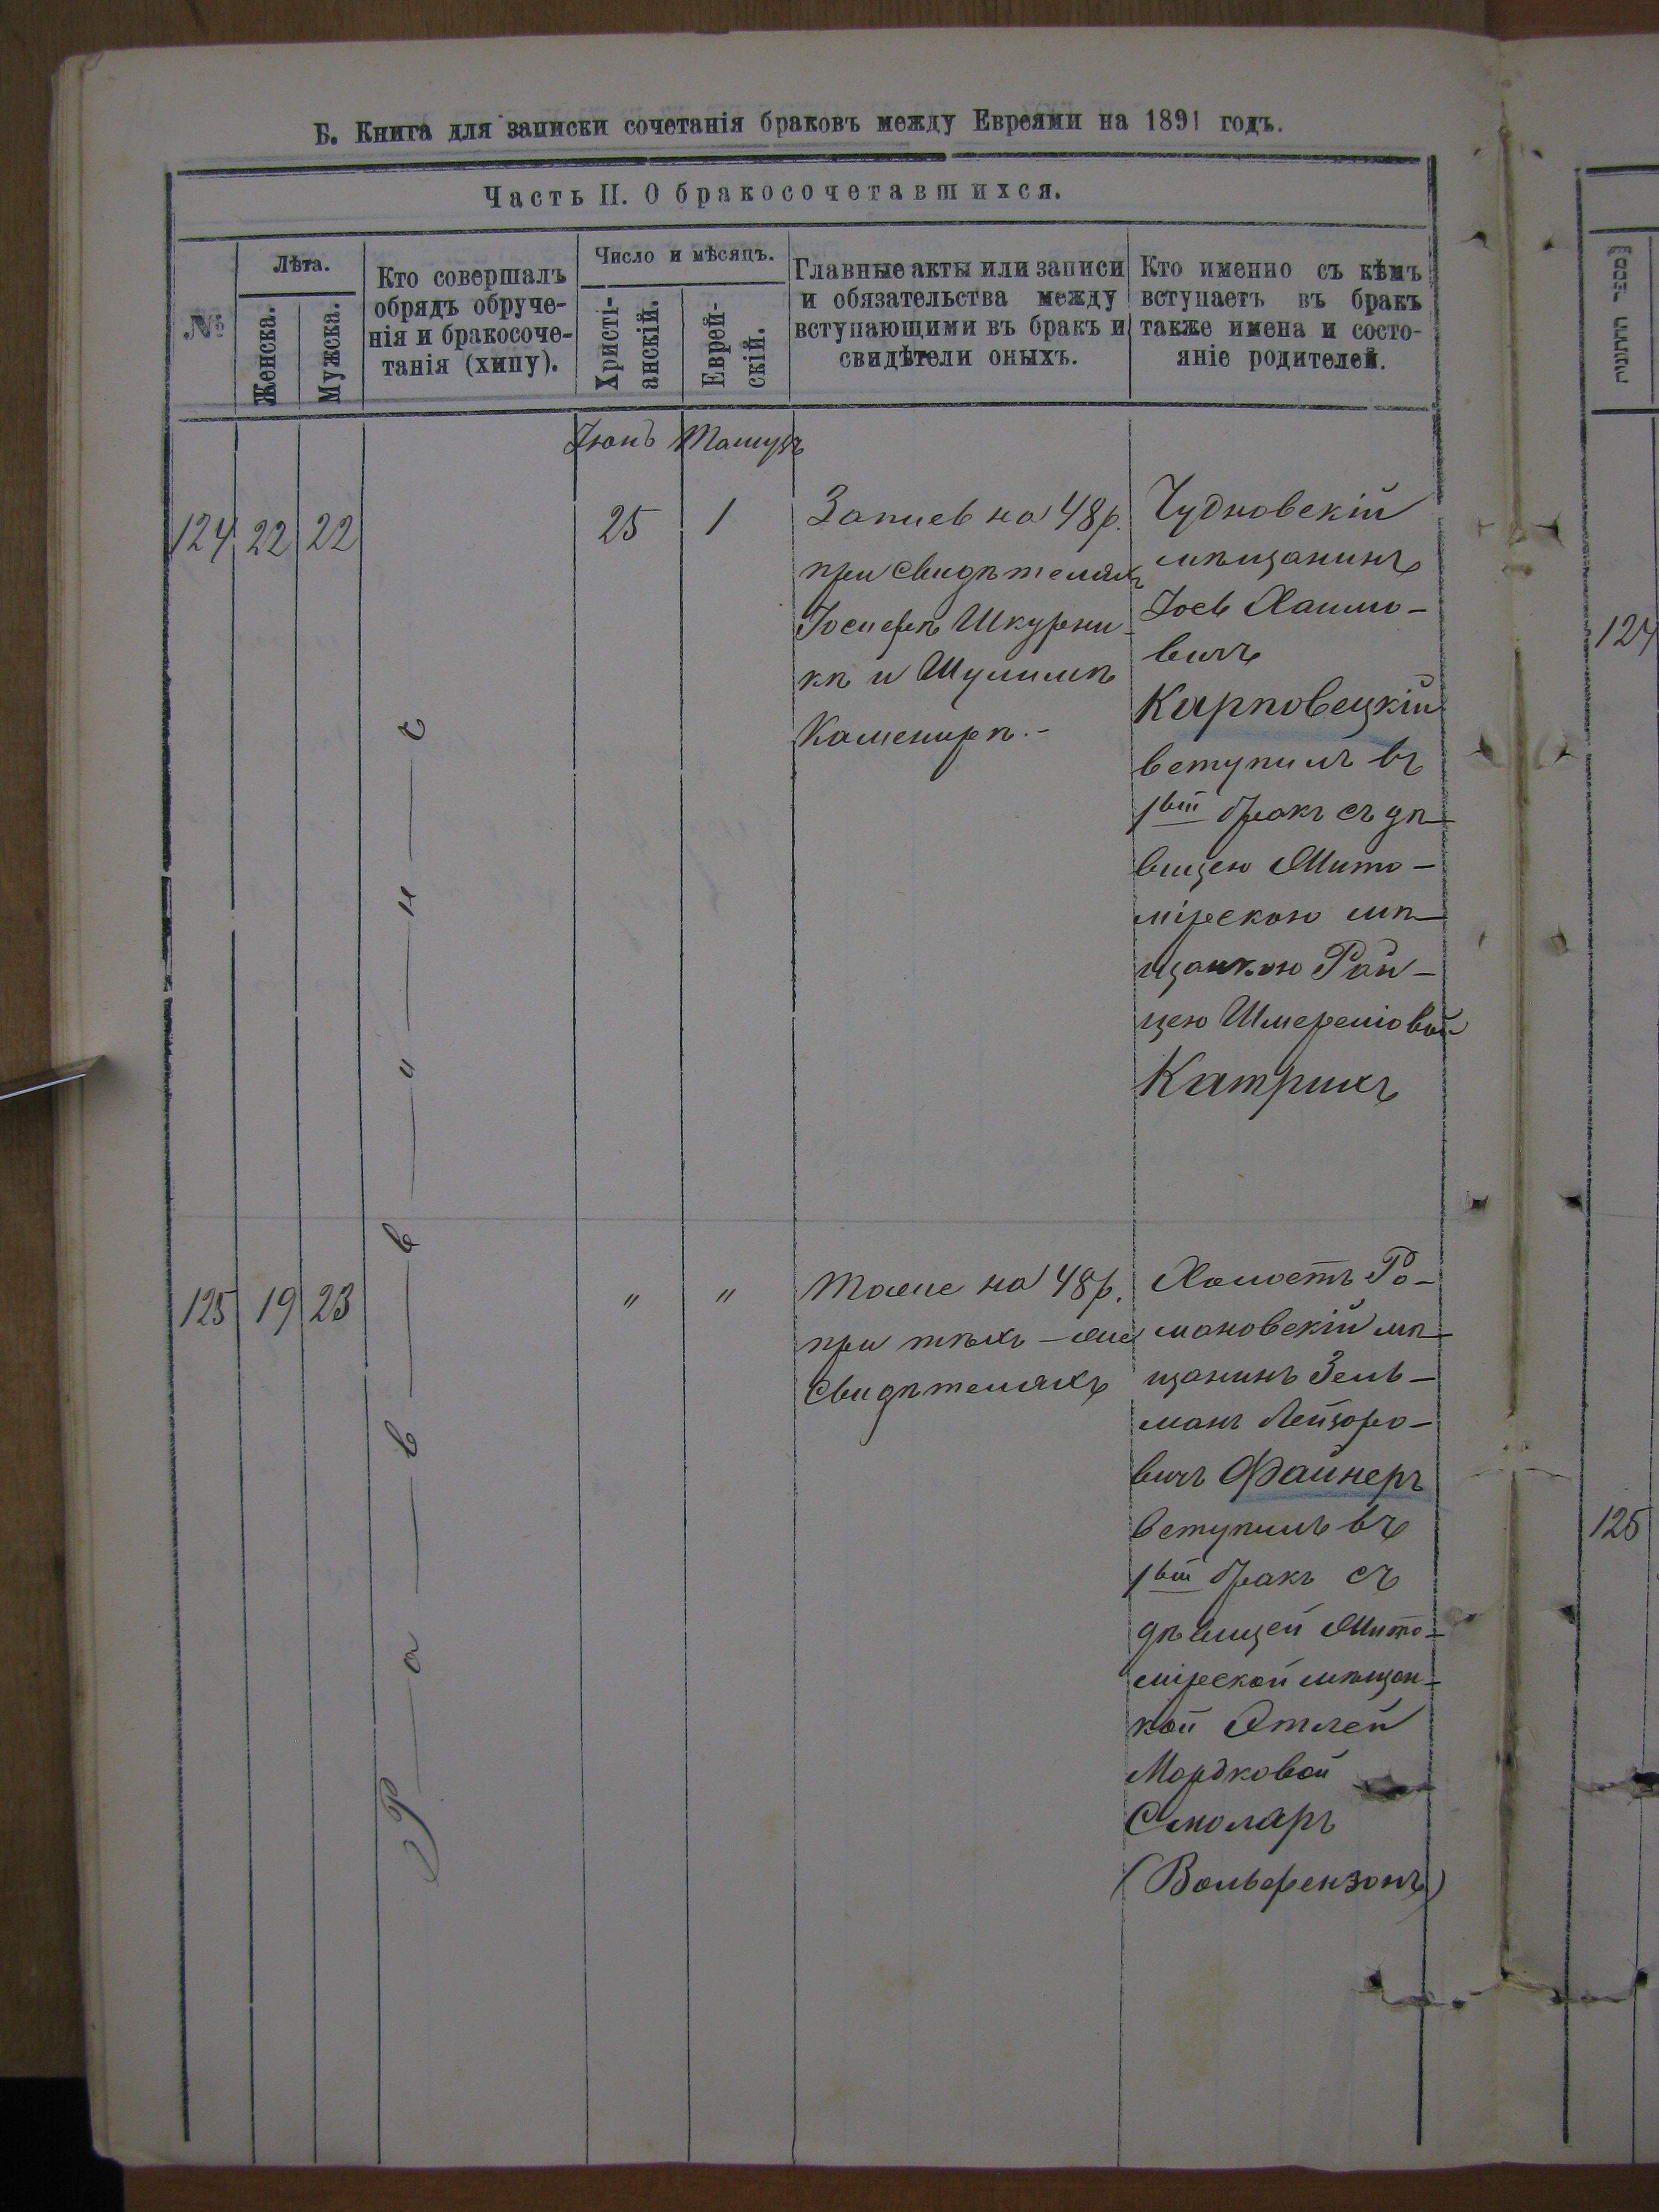 Б. Книга для записки сочетанія браковъ между Евреями на 1891 годъ.
Часть II. О бракосочетавшихся.
№
Лѣта.
Женска.
Мужска.
Кто совершалъ
обрядъ обруче-
нія и бракосоче-
танія (хипу).
Число и мѣсяцъ.
Христі-
анскій.
Еврей-
скій.
Главные акты или записи
и обязательства между
вступающими въ бракъ и
свидѣтели оныхъ.
Кто именно съ кѣмъ
вступаетъ въ бракъ
также имена и состо-
яніе родителей.
Іюнь
Тамузъ
124
22
22
25
1
Запись на 48 р.
при свидѣтеляхъ
Іосифѣ Шкурни-
кѣ и Шулимѣ
Каменирѣ.-
Чудновскій
мѣщанинъ
Іось Хаимо-
вичъ
Карповецкій
вступилъ въ
1вый бракъ съ дѣ-
вицею Жито-
мірскою мѣ-
щанкою Рай-
цею Шмереміовой
Катрихъ
Р—а—в—в—и—н—ъ
125
19
23
"
"
Тоже на 48 р.
при тѣхъ-же
свидѣтеляхъ
Холостъ Ро-
мановскій мѣ-
щанинъ Зель-
манъ Лейзоро-
вичъ Файнеръ
вступилъ въ
1вый бракъ съ
дѣвицей Жито-
мірской мѣщан-
кой Этлей
Мордковой
Смоляръ
(Вольфензонъ)
124
125